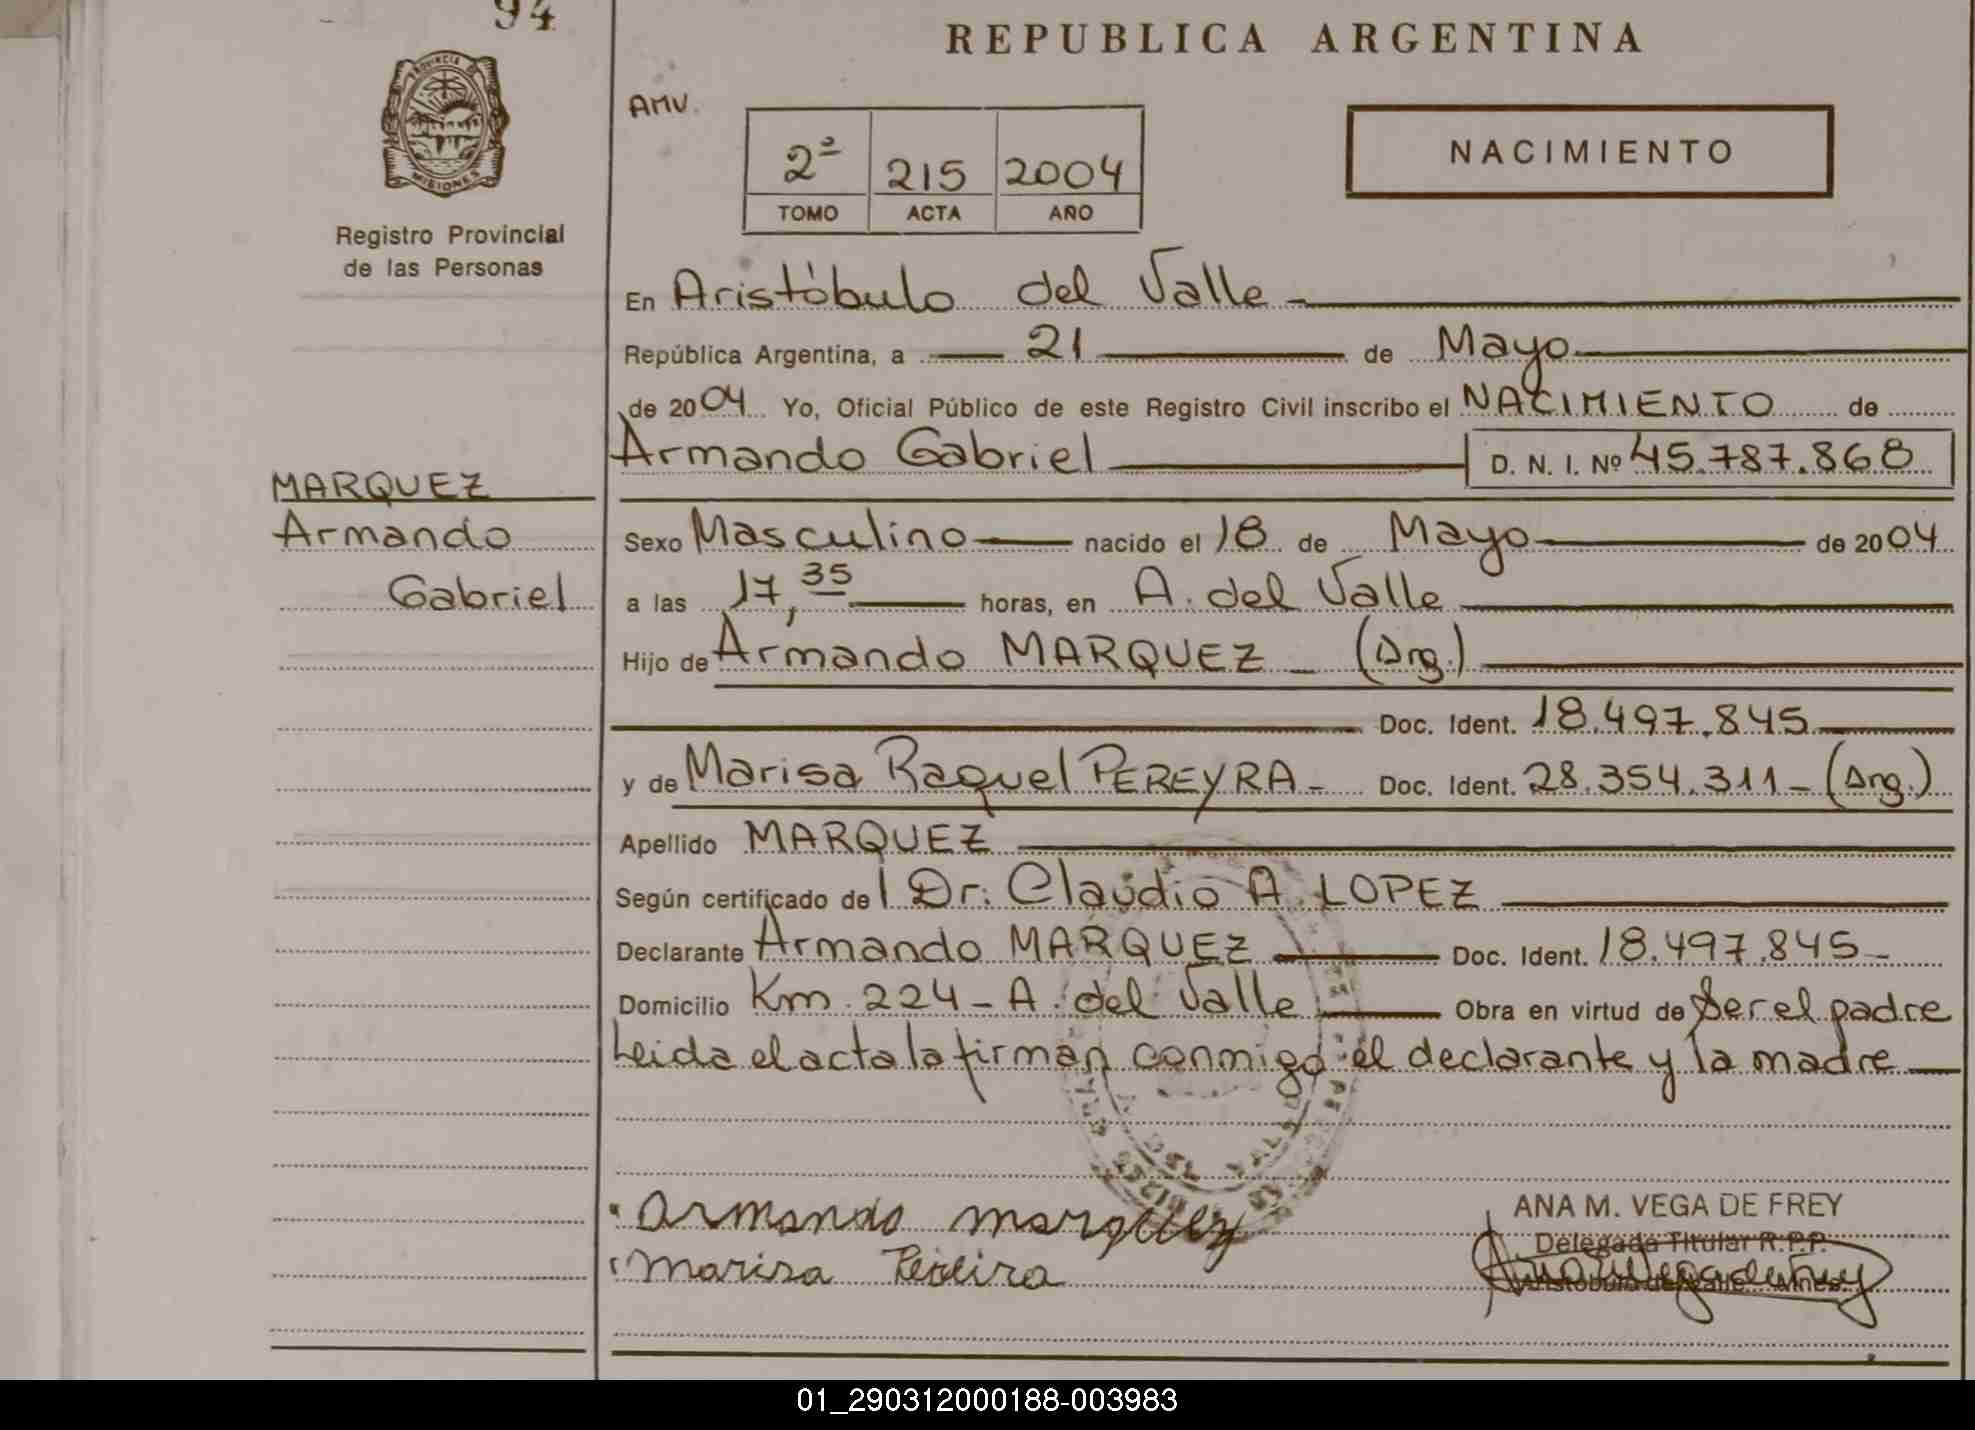 94
REPUBLICA ARGENTINA
PROVINCIA DE
MISIONES
Registro Provincial
de las Personas
AMV.
2º 215 2004
TOMO ACTA AÑO
NACIMIENTO
En Aristóbulo del Valle
República Argentina, a 21 de Mayo
de 2004 Yo, Oficial Público de este Registro Civil inscribo el NACIMIENTO de
Armando Gabriel D. N. I. Nº 45.787.868
MARQUEZ
Armando
Gabriel
Sexo Masculino nacido el 18 de Mayo de 2004
a las 17,35 horas, en A. del Valle
Hijo de Armando MARQUEZ - (Arg.)
Doc. Ident. 18.497.845
y de Marisa Raquel PEREYRA - Doc. Ident. 28.354.311 - (Arg.)
Apellido MARQUEZ
Según certificado del Dr: Claudio A. LOPEZ
Declarante Armando MARQUEZ Doc. Ident. 18.497.845-
Domicilio Km. 224 - A. del Valle Obra en virtud de Ser el padre
Leida el acta la firman conmigo el declarante y la madre
Armando marquez
marisa Pereira
ANA M. VEGA DE FREY
Delegada Titular R.P.P.
Aristóbulo del Valle - Mnes.
01_290312000188-003983